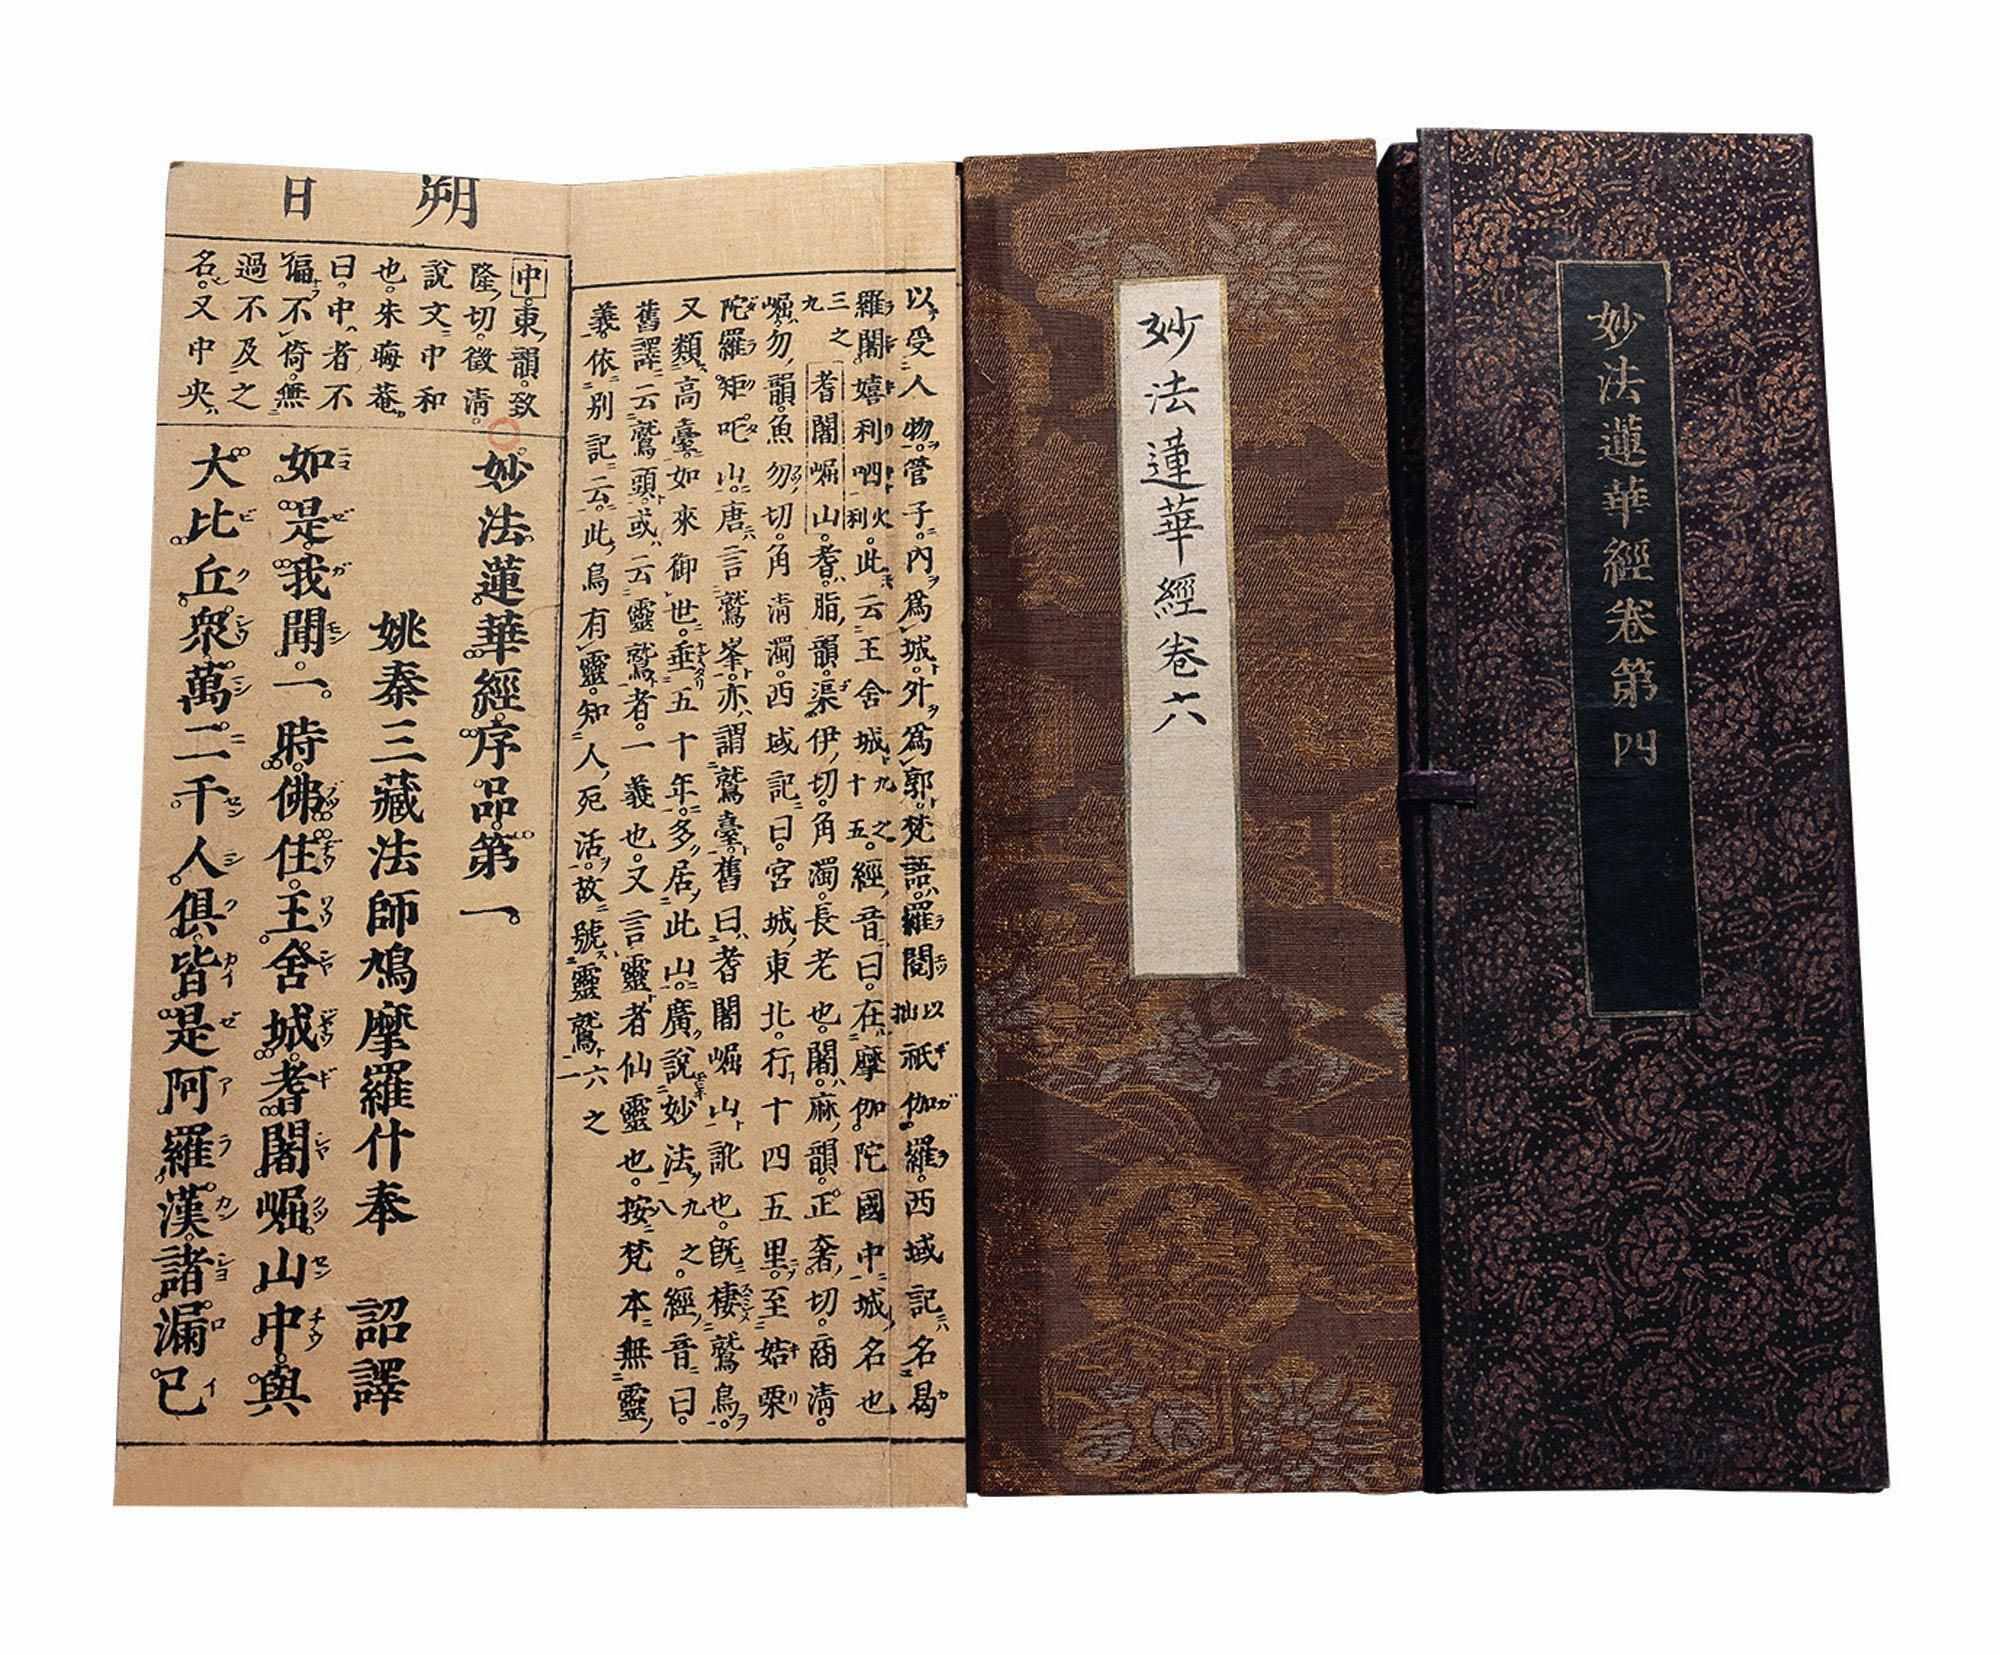 妙法蓮華經卷第四
妙法蓮華經卷六
以受人物管子內爲城外爲郭梵語羅閱以拙祇伽羅西域記名曷
羅闍嬉利呬火利此云王舍城九之十五經音曰在摩伽陀國中城名也
三之九耆闍崛山耆脂韻渠伊切角濁長老也闍麻韻正奢切商淸
崛勿韻魚勿切角淸濁西域記曰宮城東北行十四五里至姞栗
陀羅矩吒山唐言鷲峯亦謂鷲臺舊曰耆闍崛山訛也旣棲鷲鳥
又類高臺如來御世垂五十年多居此山廣說妙法八九之經音曰
舊譯云鷲頭或云靈鷲者一義也又言靈者仙靈也按梵本無靈
義依別記云此鳥有靈知人死活故號靈鷲一六之
朔日
中東韻致
隆切徵淸
說文中和
也朱晦菴
曰中者不
偏不倚無
過不及之
名又中央
妙法蓮華經序品第一
姚秦三藏法師鳩摩羅什奉 詔譯
如是我聞一時佛住王舍城耆闍崛山中與
大比丘衆萬二千人俱皆是阿羅漢諸漏已